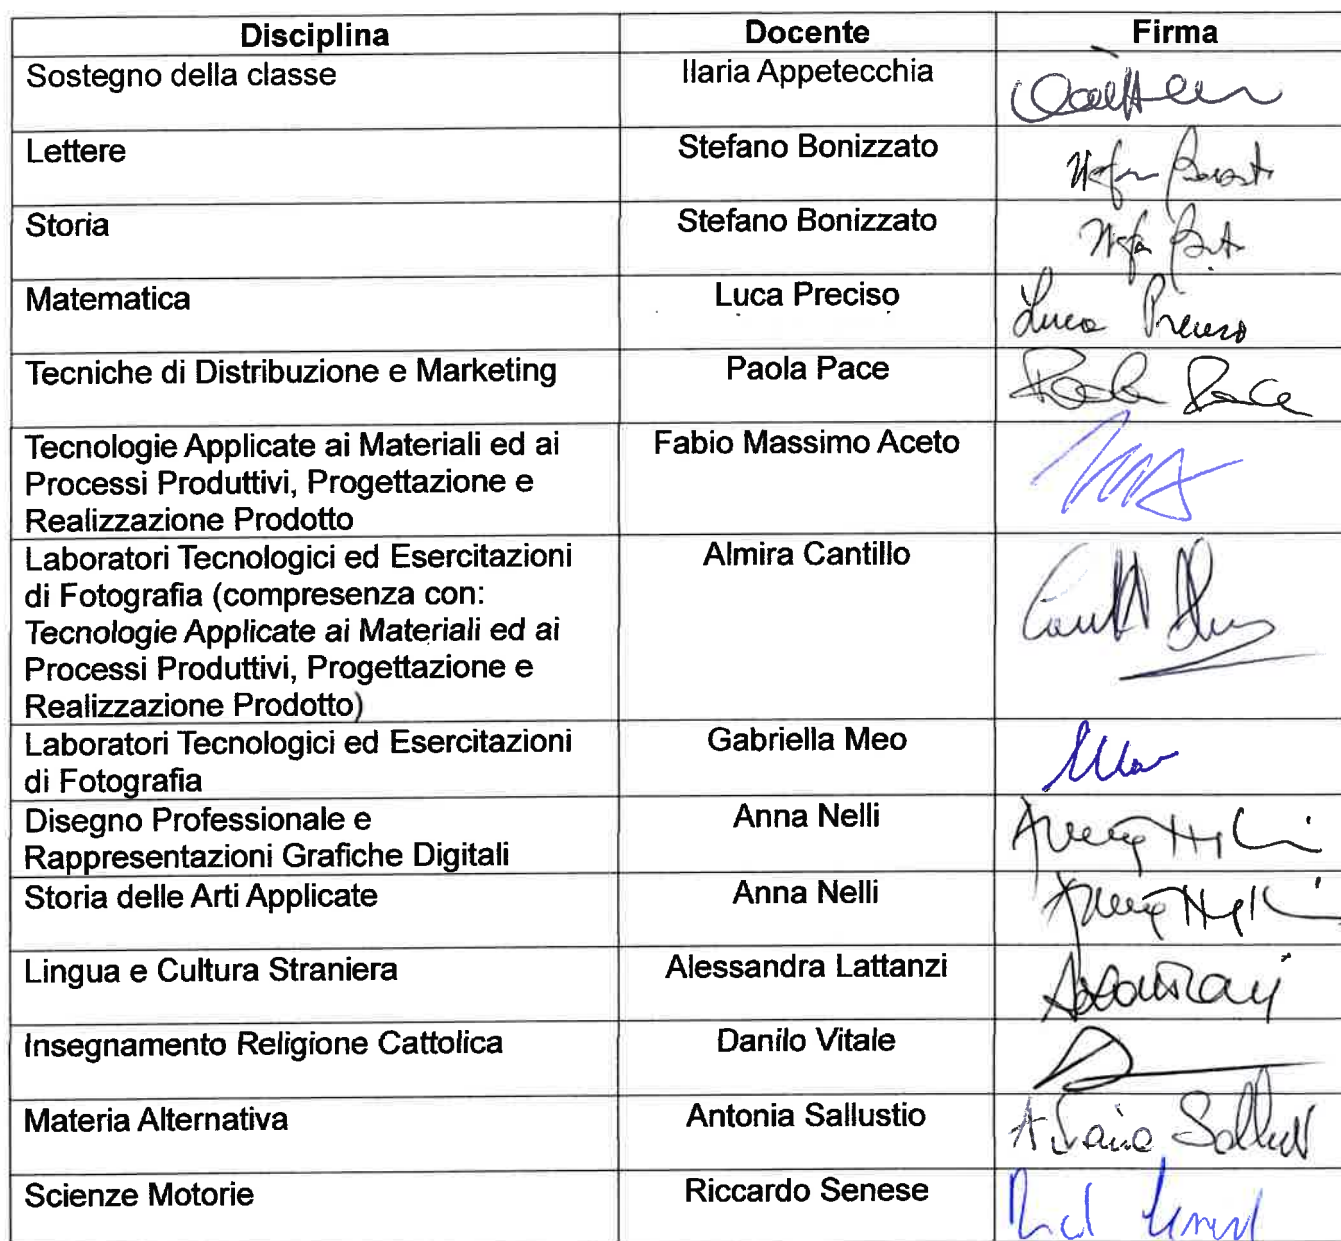 Disciplina Docente Firma
Sostegno della classe Ilaria Appetecchia
Lettere Stefano Bonizzato
Storia Stefano Bonizzato
Matematica Luca Preciso Luca Preciso
Tecniche di Distribuzione e Marketing Paola Pace Paola Pace
Tecnologie Applicate ai Materiali ed ai Fabio Massimo Aceto
Processi Produttivi, Progettazione e
Realizzazione Prodotto
Laboratori Tecnologici ed Esercitazioni Almira Cantillo
di Fotografia (compresenza con:
Tecnologie Applicate ai Materiali ed ai
Processi Produttivi, Progettazione e
Realizzazione Prodotto)
Laboratori Tecnologici ed Esercitazioni Gabriella Meo
di Fotografia
Disegno Professionale e Anna Nelli
Rappresentazioni Grafiche Digitali
Storia delle Arti Applicate Anna Nelli
Lingua e Cultura Straniera Alessandra Lattanzi
Insegnamento Religione Cattolica Danilo Vitale
Materia Alternativa Antonia Sallustio
Scienze Motorie Riccardo Senese